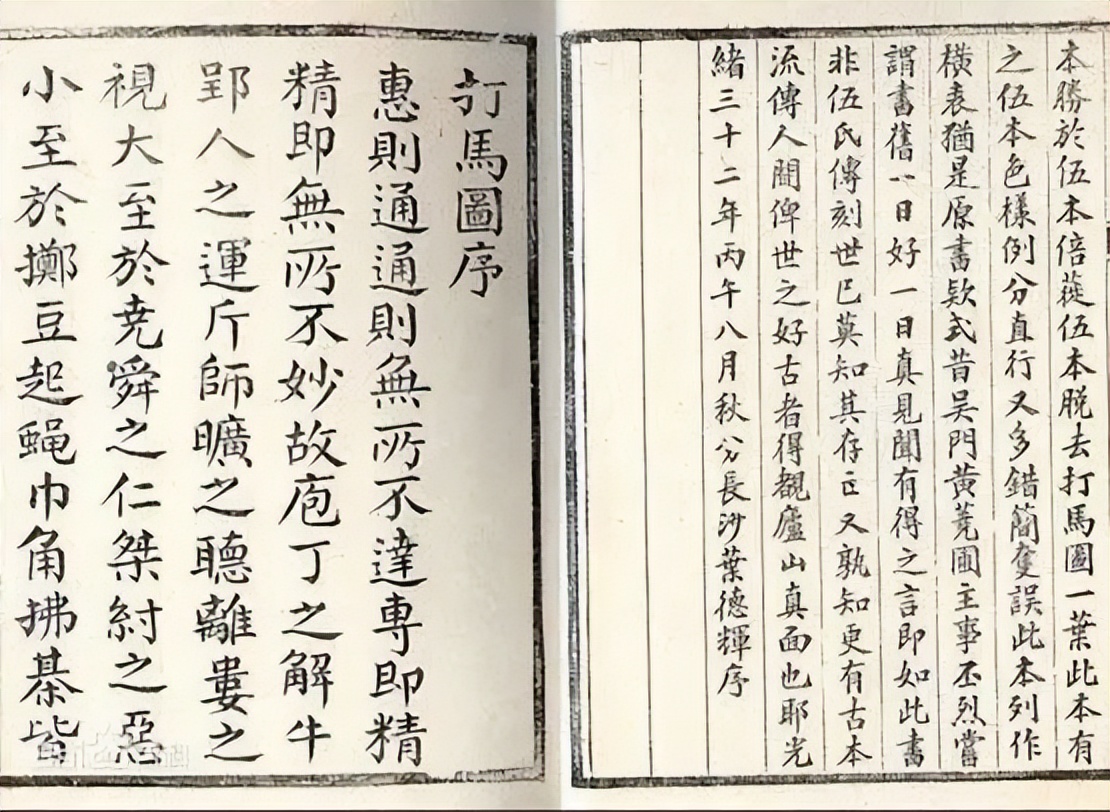 本勝於伍本倍蓰伍本脱去打馬圖一葉此本有
之伍本色樣例分直行又多錯簡奪誤此本列作
橫表猶是原書欵式昔吴門黄蕘圃主事丕烈嘗
謂書舊一日好一日真見聞有得之言即如此書
非伍氏傳刻世已莫知其存亡又孰知更有古本
流傳人間俾世之好古者得覩廬山真面也耶光
緒三十二年丙午八月秋分長沙葉德輝序
打馬圖序
惠則通通則無所不達專即精
精即無所不妙故庖丁之解牛
郢人之運斤師曠之聽離婁之
視大至於堯舜之仁桀紂之惡
小至於擲豆起蝇巾角拂棊皆